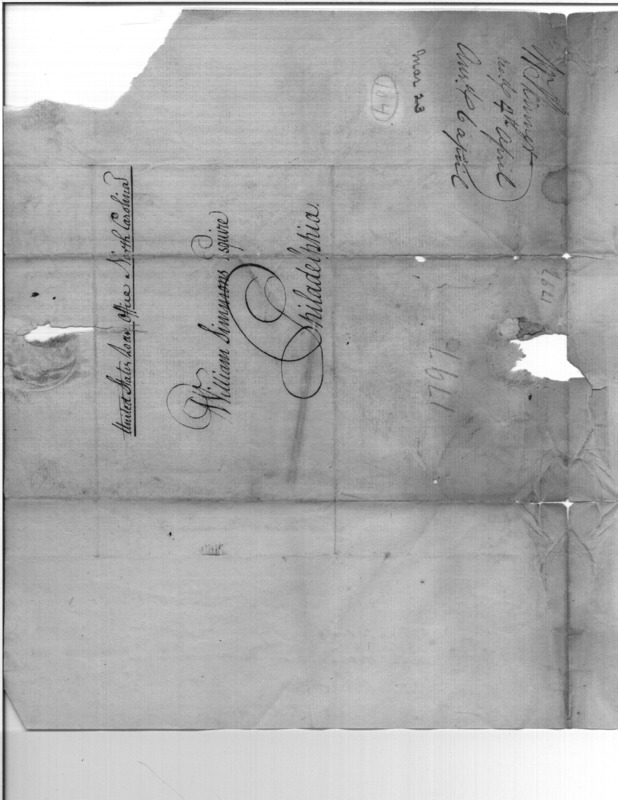 United States Loan Office North Carolina
William Simmons Esquire
Philadelphia.
4th April
Ans.d 6 april
Mar 23
1791